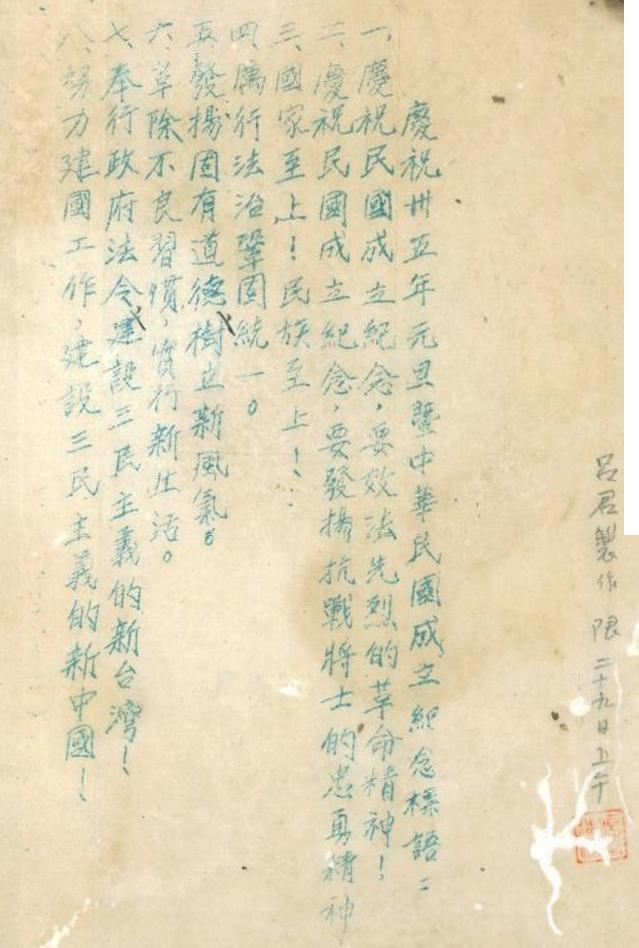 呂君製作 限二十九日上午
慶祝卅五年元旦暨中華民國成立紀念標語：
一、慶祝民國成立紀念，要效法先烈的革命精神！
二、慶祝民國成立紀念，要發揚抗戰將士的忠勇精神
三、國家至上！民族至上！
四、厲行法治鞏固統一。
五、發揚固有道德樹立新風氣。
六、革除不良習慣，實行新生活。
七、奉行政府法令建設三民主義的新台灣！
八、努力建國工作，建設三民主義的新中國！